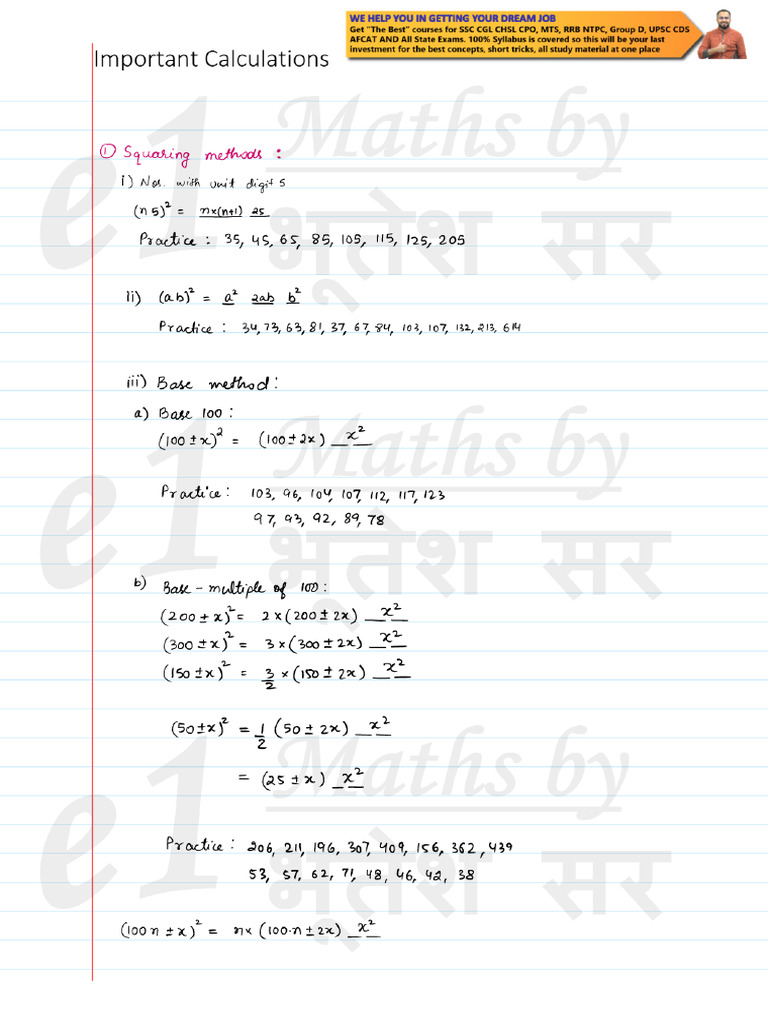 WE HELP YOU IN GETTING YOUR DREAM JOB
Get "The Best" courses for SSC CGL CHSL CPO, MTS, RRB NTPC, Group D, UPSC CDS
AFCAT AND All State Exams. 100% Syllabus is covered so this will be your last
investment for the best concepts, short tricks, all study material at one place
Important Calculations
① Squaring methods :
i) Nos. with unit digit 5
(n 5)² = n×(n+1) 25
Practice : 35, 45, 65, 85, 105, 115, 125, 205
ii) (ab)² = a² 2ab b²
Practice : 34, 73, 63, 81, 37, 67, 84, 103, 107, 132, 213, 614
iii) Base method :
a) Base 100 :
(100 ± x)² = (100 ± 2x) __x²__
Practice : 103, 96, 104, 107, 112, 117, 123
97, 93, 92, 89, 78
b) Base - multiple of 100 :
(200 ± x)² = 2 × (200 ± 2x) __x²__
(300 ± x)² = 3 × (300 ± 2x) __x²__
(150 ± x)² = 3/2 × (150 ± 2x) __x²__
(50 ± x)² = 1/2 (50 ± 2x) __x²__
= (25 ± x) __x²__
Practice : 206, 211, 196, 307, 409, 156, 362, 439
53, 57, 62, 71, 48, 46, 42, 38
(100 n ± x)² = n× (100·n ± 2x) __x²__
e1 Maths by
भूतेश सर
e1 Maths by
भूतेश सर
e1 Maths by
भूतेश सर